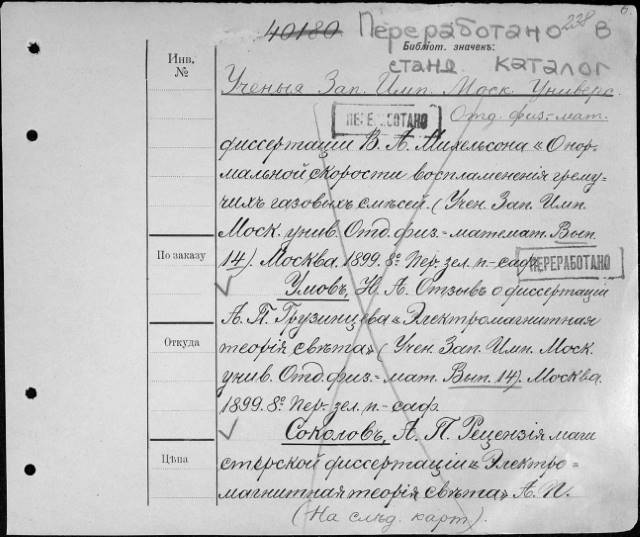 6.
40180 Переработано 228 в
Библіот. значекъ:
станд. каталог
Инв.
№
Ученыя Зап. Имп. Моск. Универс.
Отд. физ.-мат.
ПЕРЕРАБОТАНО
диссертации В. А. Михельсона «О нор-
мальной скорости воспламененія грему-
чихъ газовыхъ смѣсей. (Учен. Зап. Имп.
Моск. унив. Отд. физ.-математ. Вып.
По заказу
14). Москва. 1899. 8º. Пер.-зел. п.-саф.
ПЕРЕРАБОТАНО
Умовъ, Н. А. Отзывъ о диссертаціи
А. П. Грузинцева «Электромагнитная
Откуда
теорія свѣта» (Учен. Зап. Имп. Моск.
унив. Отд. физ.-мат. Вып. 14). Москва.
1899. 8º. Пер.-зел. п.-саф.
Соколовъ, А. П. Рецензія маги
Цѣна
стерской диссертаціи «Электро-
магнитная теорія свѣта» А. П.
(На слѣд. карт.).